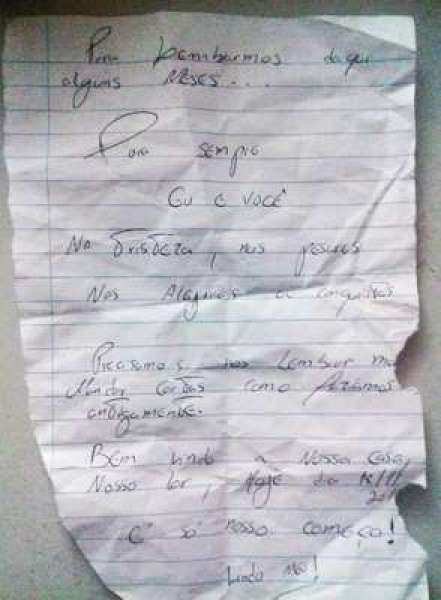 Para Lembrarmos daqui
alguns Meses....
Para sempre
Eu e VOCÊ
Na Tristeza, nas
Nas Alegrias e conquistas
Precisamos nos Lembrar
Mandar Cartas como fazíamos
antigamente.
BEM vindo a Nossa Casa,
Nosso lar, Hoje dia
É só nosso começo!
Lindo